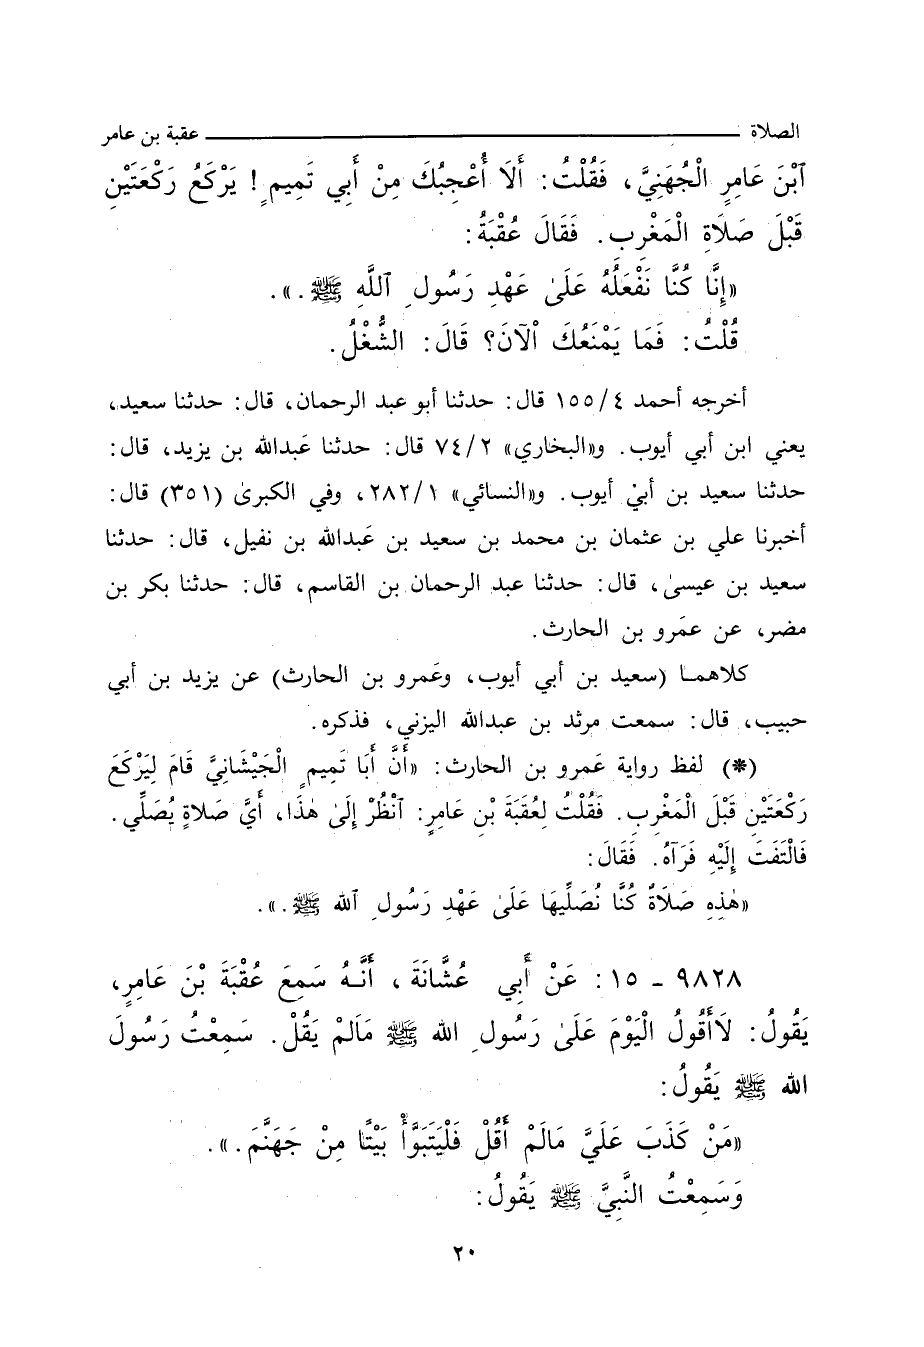 الصلاة عقبة بن عامر
ٱبْنَ عَامِرٍ الْجُهَنِيَّ، فَقُلْتُ: أَلَا أُعْجِبُكَ مِنْ أَبِي تَمِيمٍ ! يَرْكَعُ رَكْعَتَيْنِ
قَبْلَ صَلَاةِ الْمَغْرِبِ. فَقَالَ عُقْبَةُ:
«إِنَّا كُنَّا نَفْعَلُهُ عَلَىٰ عَهْدِ رَسُولِ ٱللَّهِ ﷺ.».
قُلْتُ: فَمَا يَمْنَعُكَ الْآنَ؟ قَالَ: الشُّغْلُ.
أخرجه أحمد ٤/١٥٥ قال: حدثنا أبو عبد الرحمان، قال: حدثنا سعيد،
يعني ابن أبي أيوب. و«البخاري» ٢/٧٤ قال: حدثنا عَبدالله بن يزيد، قال:
حدثنا سعيد بن أبيْ أيوب. و«النسائي» ١/٢٨٢، وفي الكبرىٰ (٣٥١) قال:
أخبرنا علي بن عثمان بن محمد بن سعيد بن عَبدالله بن نفيل، قال: حدثنا
سعيد بن عيسىٰ، قال: حدثنا عبد الرحمان بن القاسم، قال: حدثنا بكر بن
مضر، عن عمَرو بن الحارث.
كلاهما (سعيد بن أبي أيوب، وعَمرو بن الحارث) عن يزيد بن أبي
حبيب، قال: سمعت مرثد بن عبدالله اليزني، فذكره.
(*) لفظ رواية عَمرو بن الحارث: «أَنَّ أَبَا تَمِيمٍ الْجَيْشَانِيَّ قَامَ لِيَرْكَعَ
رَكْعَتَيْنِ قَبْلَ الْمَغْرِبِ. فَقُلْتُ لِعُقْبَةَ بْنِ عَامِرٍ: ٱنْظُرْ إِلَىٰ هٰذَا، أَيَّ صَلاةٍ يُصَلِّي.
فَالْتَفَتَ إِلَيْهِ فَرَآهُ. فَقَالَ:
«هٰذِهِ صَلَاةٌ كُنَّا نُصَلِّيهَا عَلَىٰ عَهْدِ رَسُولِ ٱلله ﷺ.».
٩٨٢٨ ـ ١٥: عَنْ أَبِي عُشَّانَةَ، أَنَّهُ سَمِعَ عُقْبَةَ بْنَ عَامِرٍ،
يَقُولُ: لَاأَقُولُ الْيَوْمَ عَلَىٰ رَسُولِ الله ﷺ مَالَمْ يَقُلْ. سَمِعْتُ رَسُولَ
الله ﷺ يَقُولُ:
«مَنْ كَذَبَ عَلَيَّ مَالَمْ أَقُلْ فَلْيَتَبَوَّأْ بَيْتًا مِنْ جَهَنَّمَ.».
وَسَمِعْتُ النَّبِيَّ ﷺ يَقُولُ:
٢٠